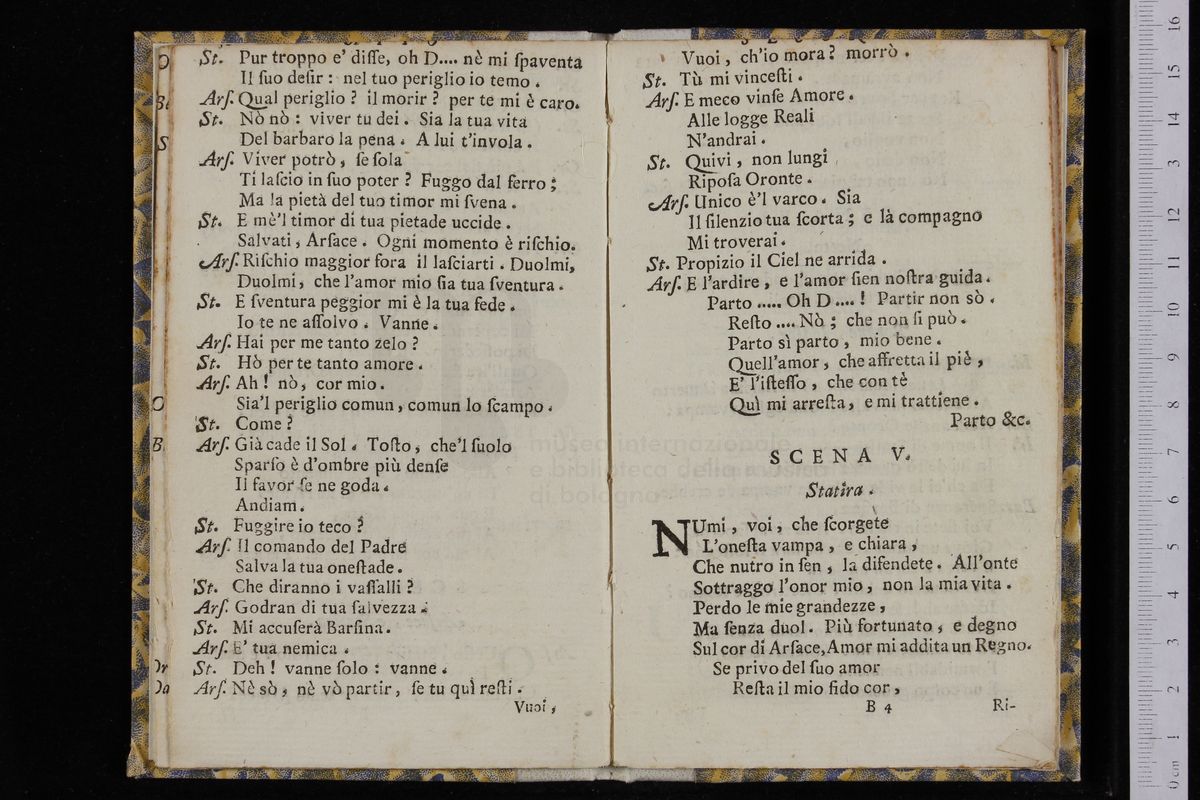 St. Pur troppo e' diſſe, oh D.... nè mi ſpaventa
Il ſuo deſir : nel tuo periglio io temo .
Arſ. Qual periglio ? il morir ? per te mi è caro.
St. Nò nò : viver tu dei . Sia la tua vita
Del barbaro la pena . A lui t'invola .
Arſ. Viver potrò , ſe ſola
Ti laſcio in ſuo poter ? Fuggo dal ferro ;
Ma la pietà del tuo timor mi ſvena .
St. E mè'l timor di tua pietade uccide .
Salvati , Arſace . Ogni momento è riſchio.
Arſ. Riſchio maggior fora il laſciarti . Duolmi,
Duolmi , che l'amor mio ſia tua ſventura .
St. E ſventura peggior mi è la tua fede .
Io te ne aſſolvo . Vanne .
Arſ. Hai per me tanto zelo ?
St. Hò per te tanto amore .
Arſ. Ah ! nò, cor mio .
Sia'l periglio comun , comun lo ſcampo .
St. Come ?
Arſ. Già cade il Sol . Toſto , che'l ſuolo
Sparſo è d'ombre più denſe
Il favor ſe ne goda .
Andiam .
St. Fuggire io teco ?
Arſ. Il comando del Padre
Salva la tua oneſtade .
St. Che diranno i vaſſalli ?
Arſ. Godran di tua ſalvezza .
St. Mi accuſerà Barſina .
Arſ. E' tua nemica .
St. Deh ! vanne ſolo : vanne .
Arſ. Nè sò , nè vò partir , ſe tu quì reſti .
Vuoi ,
Vuoi , ch'io mora ? morrò .
St. Tù mi vinceſti .
Arſ. E meco vinſe Amore .
Alle logge Reali
N'andrai .
St. Quivi , non lungi
Ripoſa Oronte .
Arſ. Unico è'l varco . Sia
Il ſilenzio tua ſcorta ; e là compagno
Mi troverai .
St. Propizio il Ciel ne arrida .
Arſ. E l'ardire , e l'amor ſien noſtra guida .
Parto ..... Oh D .... ! Partir non sò .
Reſto .... Nò ; che non ſi può .
Parto sì parto , mio bene .
Quell'amor , che affretta il piè ,
E' l'iſteſſo , che con tè
Quì mi arreſta , e mi trattiene .
Parto &c.
SCENA V.
Statira .
NUmi , voi , che ſcorgete
L'oneſta vampa , e chiara ,
Che nutro in ſen , la difendete . All'onte
Sottraggo l'onor mio , non la mia vita .
Perdo le mie grandezze ,
Ma ſenza duol . Più fortunato , e degno
Sul cor di Arſace, Amor mi addita un Regno.
Se privo del ſuo amor
Reſta il mio fido cor ,
B 4 Ri-
museo internazionale
e biblioteca della musica
di bologna